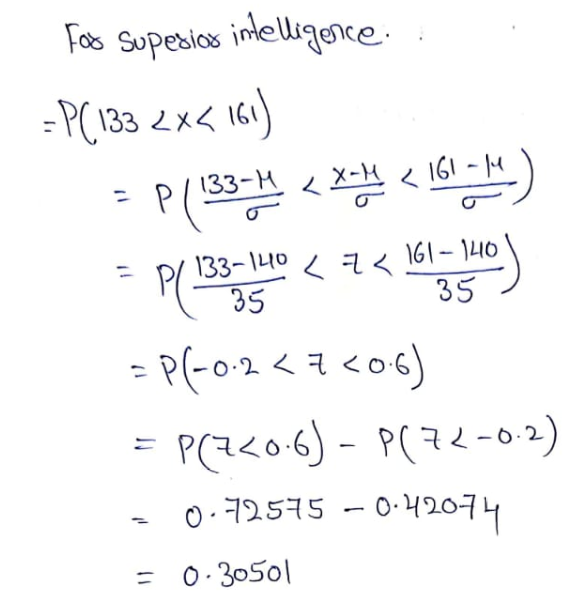 For superior intelligence.
=P(133 < x < 161)
= P(133-μ/σ < x-μ/σ < 161-μ/σ)
= P(133-140/35 < z < 161-140/35)
= P(-0.2 < z < 0.6)
= P(z<0.6) - P(z<-0.2)
= 0.72575 - 0.42074
= 0.30501